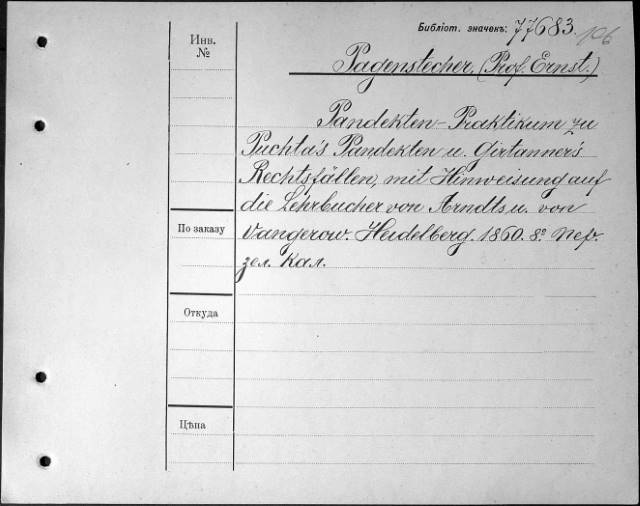 Библіот. значекъ: 77683. 106
Инв.
№
Pagenstecher, (Prof. Ernst.)
Pandekten-Praktikum zu
Puchta's Pandekten u. Girtanner's
Rechtsfällen, mit Hinweisung auf
die Lehrbucher von Arndts u. von
По заказу
Vangerow. Heidelberg. 1860. 8º. пер.
зел. кал.
Откуда
Цѣна